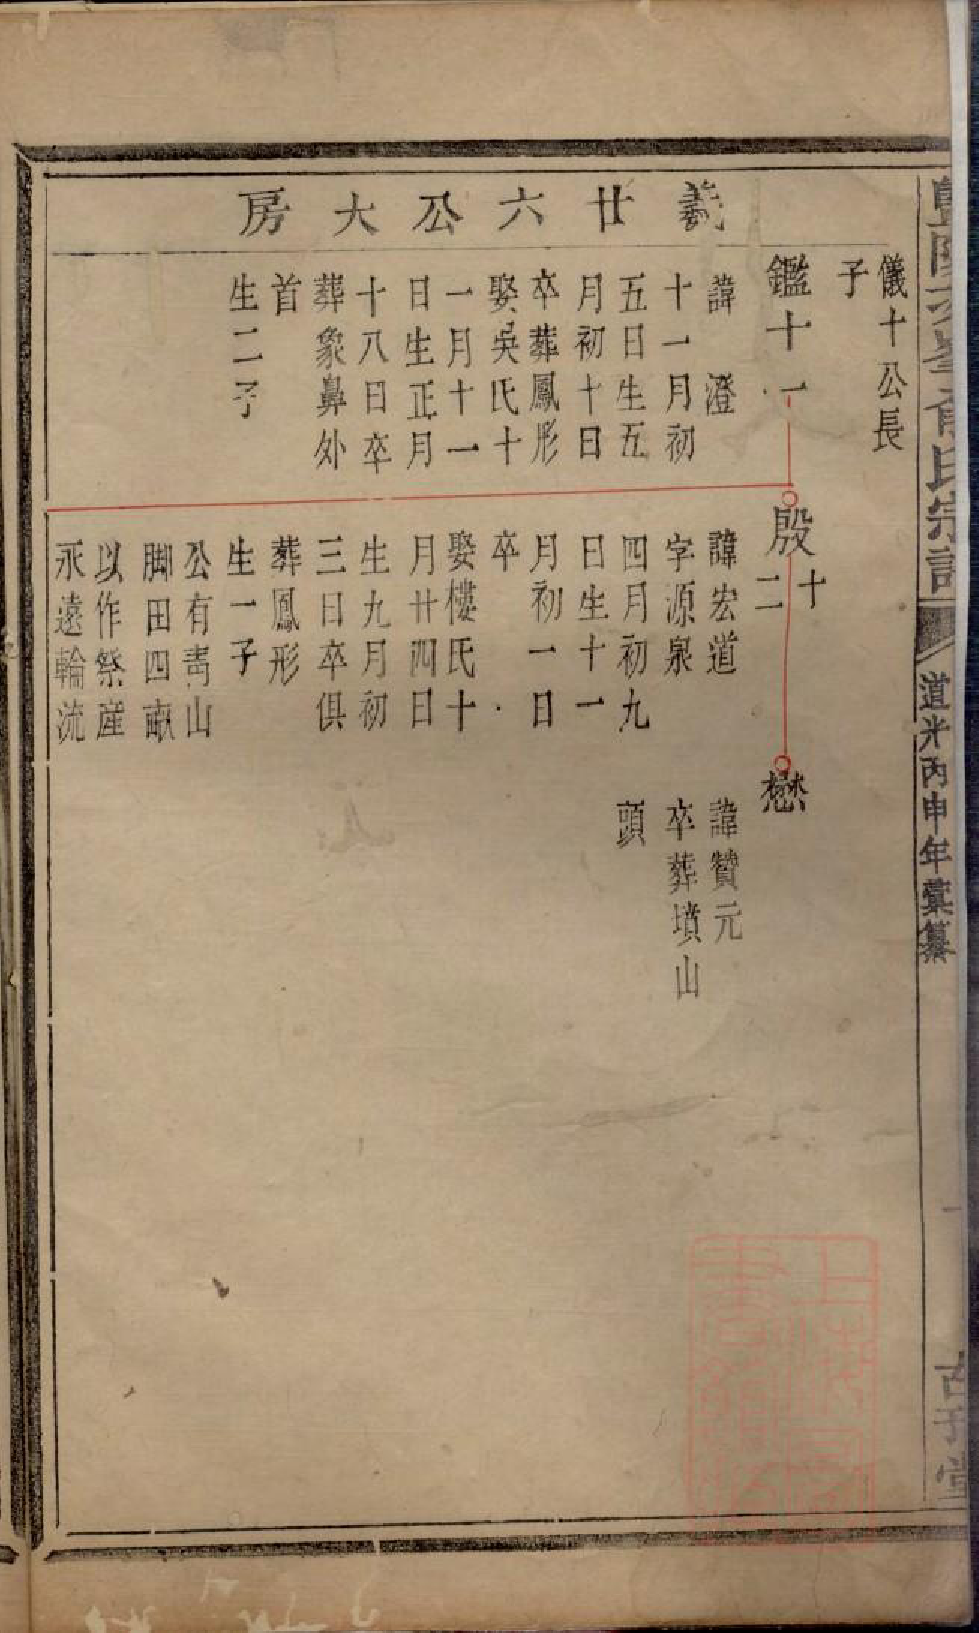 義廿六公大房
儀十公長
子
鑑十一
諱澄
十一月初
五日生五
月初十日
卒葬鳳形
娶吳氏十
一月十一
日生正月
十八日卒
葬象鼻外
首
生二子
殷十二
諱宏道
字源泉
四月初九
日生十一
月初一日
卒
娶樓氏十
月廿四日
生九月初
三日卒俱
葬鳳形
生一子
公有靑山
脚田四畝
以作祭産
永遠輪流
懋
諱贊元
卒葬墳山
頭
氏宗譜
道光丙申年彙纂